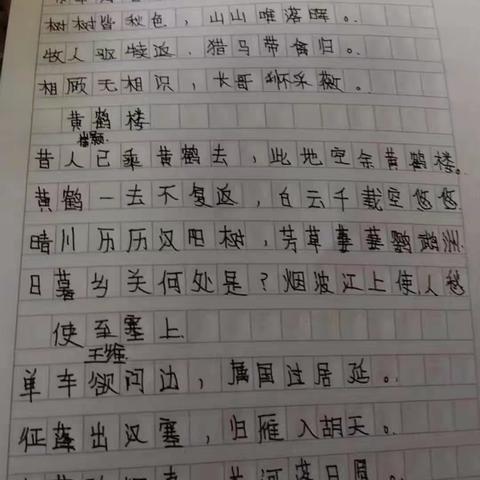 树树皆秋色，山山唯落晖。
牧人驱犊返，猎马带禽归。
相顾无相识，长哥怀采薇。
黄鹤楼
崔颢
昔人已乘黄鹤去，此地空余黄鹤楼。
黄鹤一去不复返，白云千载空悠悠
晴川历历汉阳树，芳草萋萋鹦鹉洲.
日暮乡关何处是？烟波江上使人愁
使至塞上
王维
单车欲问边，属国过居延。
征蓬出汉塞，归雁入胡天。
长河落日圆。